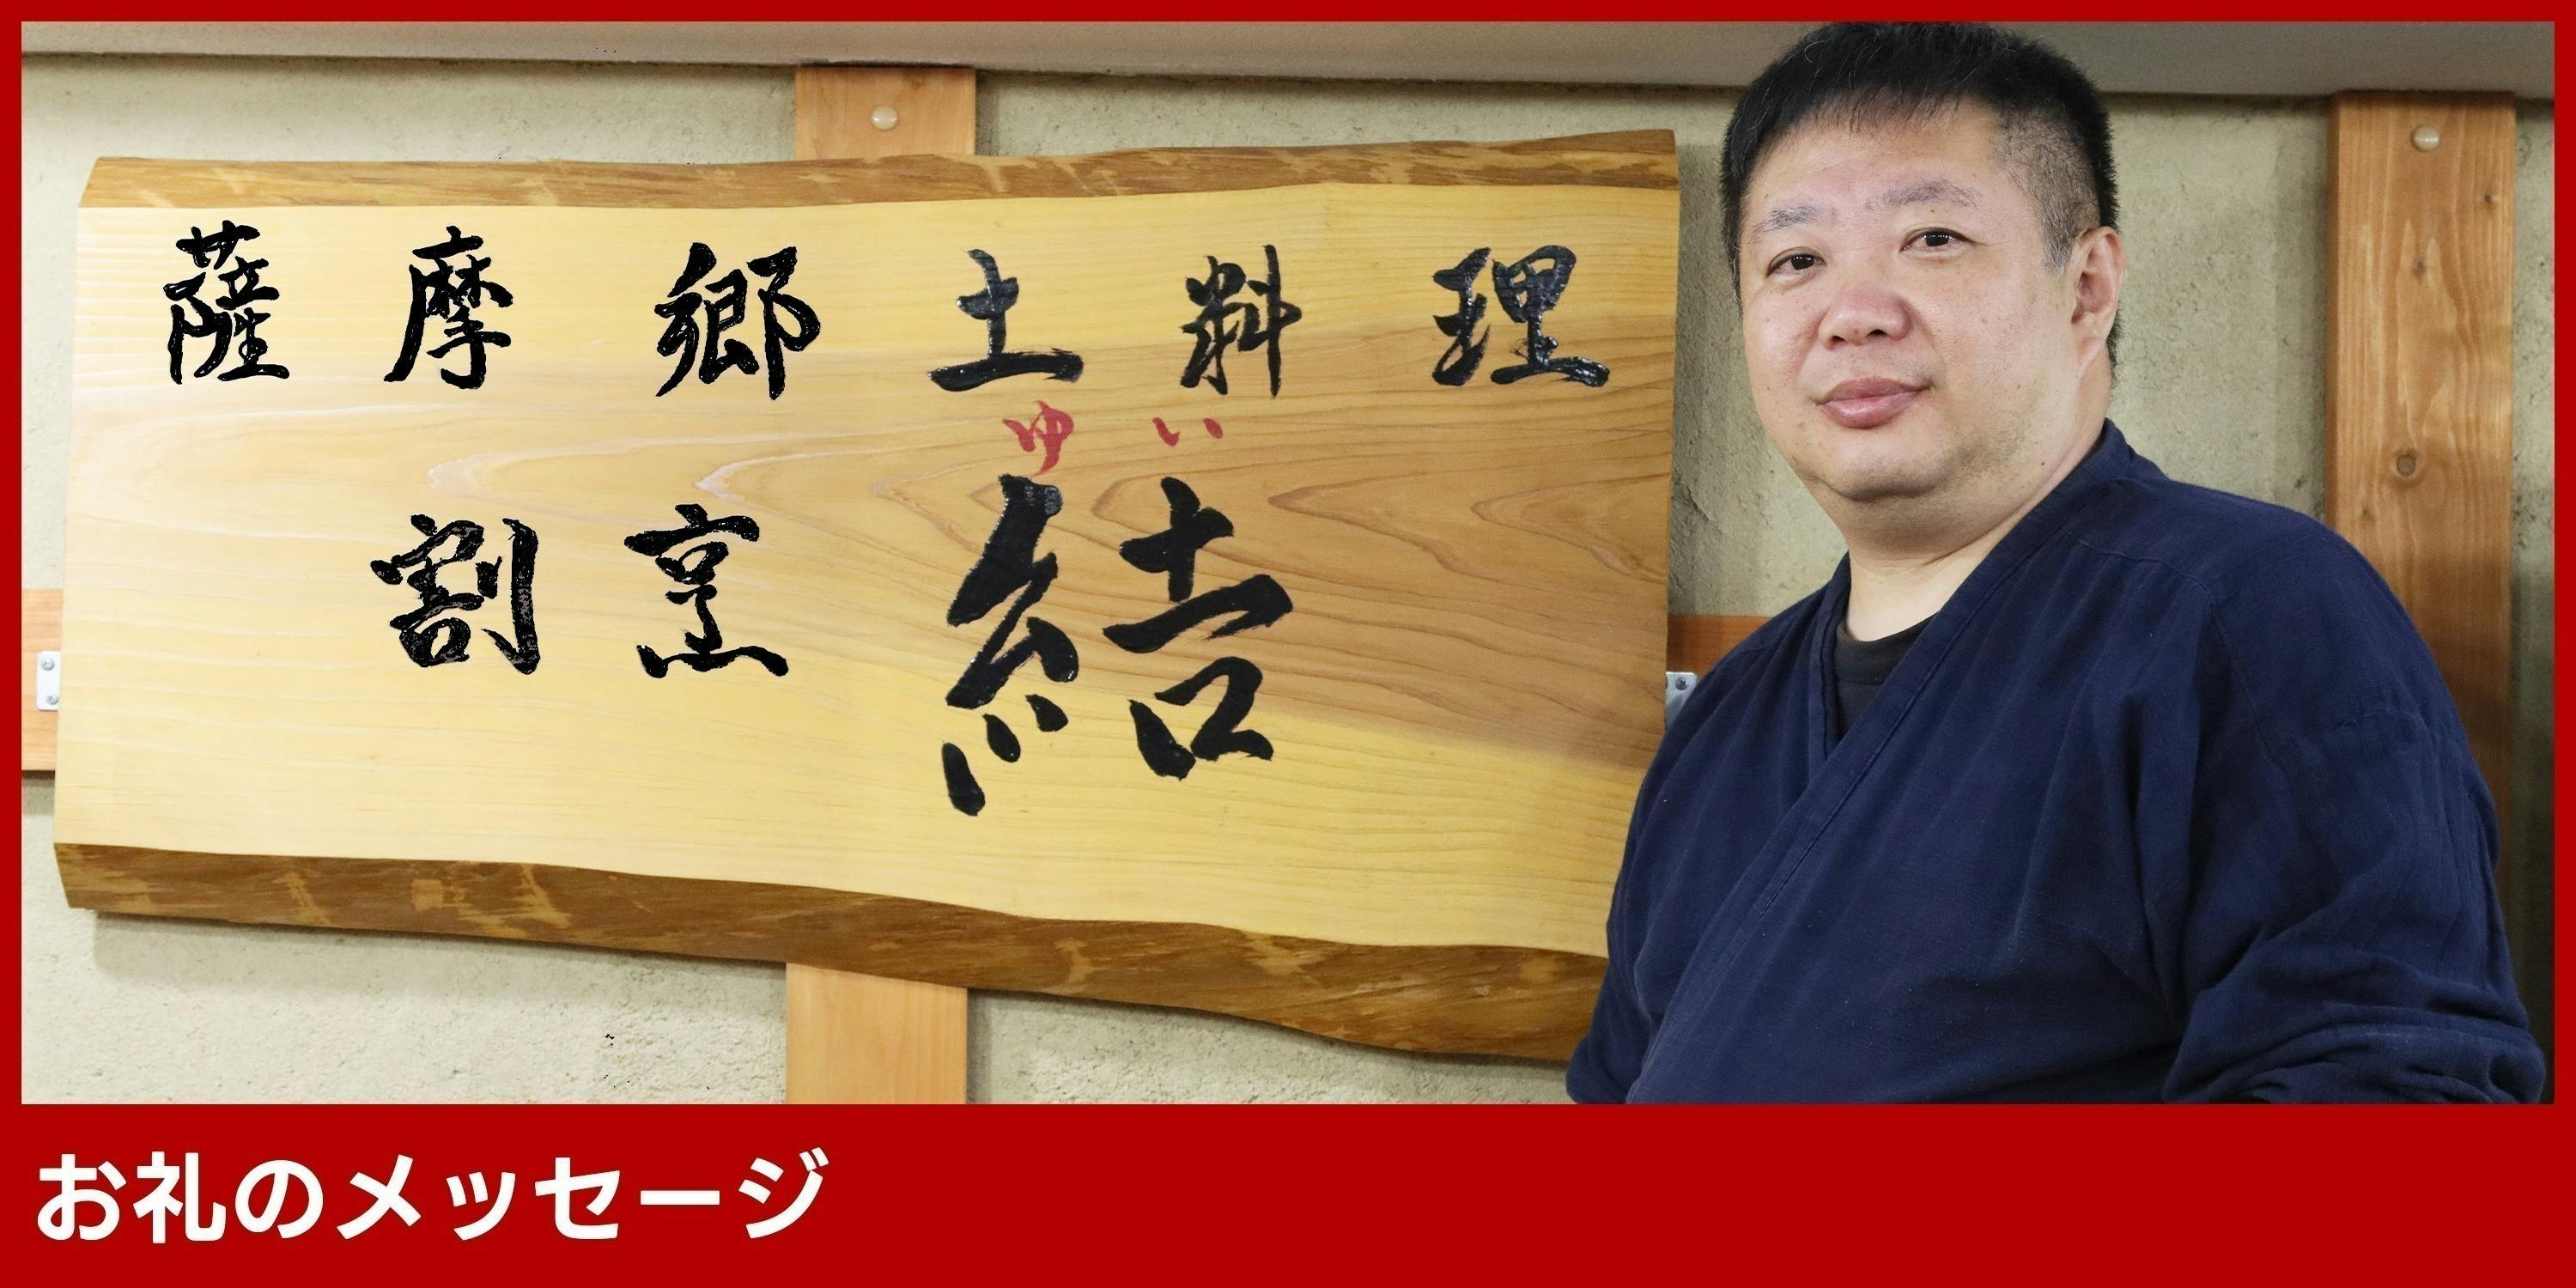 薩摩郷土料理
ゆい
割烹 結
お礼のメッセージ